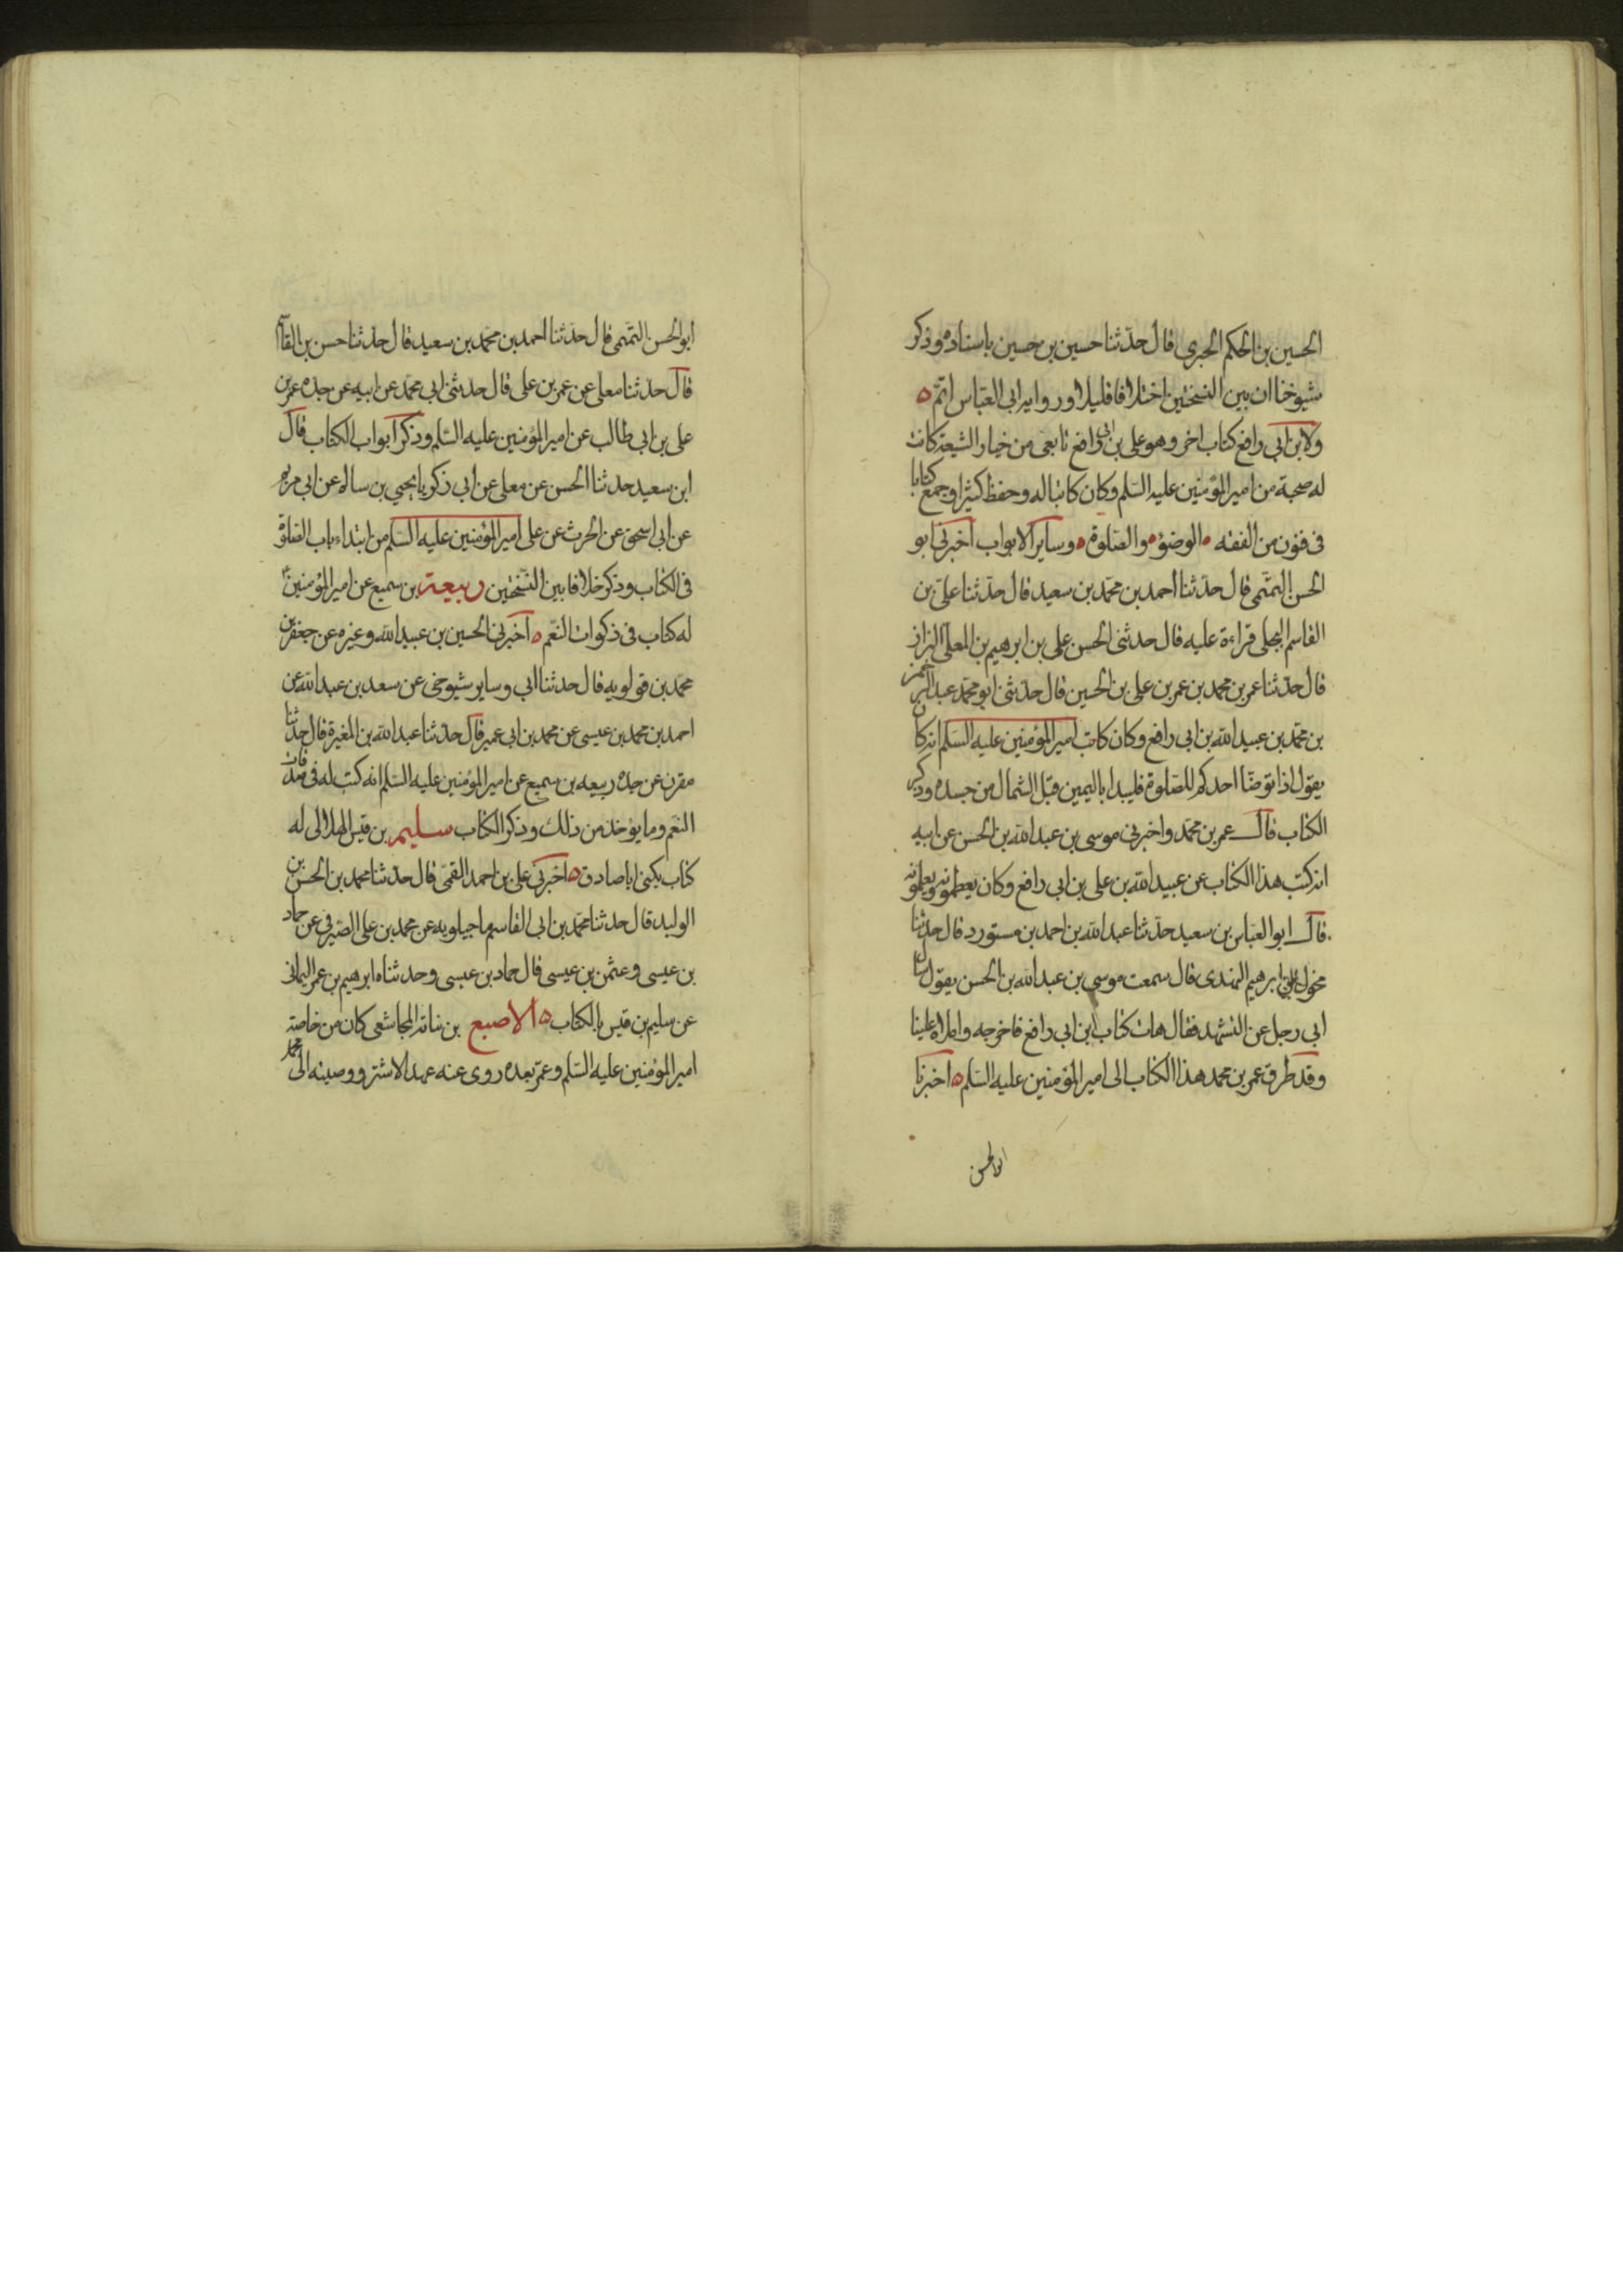 الحسين بن الحكم الحبري قال حدّثنا حسين بن حسين باسناده وذكر
شيوخنا ان بين النسختين اختلافا قليلا ورواية ابي العبّاس اتمّ ه
ولابن ابي رافع كتاب اخر وهو علي بن ابي رافع تابعي من خيار الشيعة كانت
له صحبة من امير المؤمنين عليه السّلم وكان كاتبا له وحفظ كثيرا وجمع كتابا
في فنون من الفقه الوضؤ والصّلوة وساير الابواب اخبرني ابو
الحسن التّمّمى قال حدّثنا احمد بن محمّد بن سعيد قال حدّثنا علىّ بن
القاسم البجلي قراءة عليه قال حدثني الحسن على بن ابرهيم بن المعلّى البزاز
قال حدّثنا عمر بن محمد بن عمر بن على بن الحسين قال حدّثنى ابو محمّد عبد الرحمن
بن محمّد بن عبيد الله بن ابي رافع وكان كاتب امير المؤمنين عليه السّلم انه كان
يقول اذا توضّا احدكم للصّلوة فليبدا باليمين قبل الشمال من جسده وذكر
الكتاب قال عمر بن محمّد واخبرنى موسى بن عبد الله بن الحسن عن ابيه
انه كتب هذا الكتاب عن عبيد الله بن على بن ابى رافع وكان يعظمونه ويعلمونه
قال ابو العبّاس بن سعيد حدّثنا عبد الله بن احمد بن مستورد قال حدّثنا
مخول بن ابرهيم النهدى قال سمعت موسى بن عبد الله بن الحسن يقول سال
ابي رجل عن التشهد فقال هات كتاب ابن ابي رافع فاخرجه واملاه علينا
وقد طرق عمر بن محمد هذا الكتاب الى امير المؤمنين عليه السّلم ه اخبرنا
ابو الحسن
ابو الحسن التّمّمى قال حدّثنا احمد بن محمّد بن سعيد قال حدّثنا حسن بن القاسم
قال حدثنا معلى عن عمر بن على قال حدثنى ابي محمّد عن ابيه عن جده عمر بن
على بن ابي طالب عن امير المؤمنين عليه السّلم وذكر ابواب الكتاب قال
ابن سعيد حدثنا الحسن عن معلى عن ابي زكريا يحيى بن سالم عن ابي مريم
عن ابي اسحق عن الحرث عن على امير المؤمنين عليه السّلم من ابتداء باب الصّلوة
في الكتاب وذكر خلافا بين النّسختين ربيعة بن سميع عن امير المؤمنين
له كتاب فى زكوات النّعم ه اخبرنى الحسين بن عبيد الله وغيره عن جعفر بن
محمّد بن قولويه قال حدثنا ابي وساير شيوخى عن سعد بن عبد الله عن
احمد بن محمد بن عيسى عن محمد بن ابى عمير قال حدّثنا عبد الله بن المغيرة قال حدّثنا
مقرن عن جده ربيعه بن سميع عن امير المؤمنين عليه السّلم انه كتب له فى صدقات
النعم وما يؤخذ من ذلك وذكر الكتاب سليم بن قيس الهلالى له
كتاب يكنى اباصادق ه اخبرنى على بن احمد القمّى قال حدّثنا محمد بن الحسن بن
الوليد قال حدثنا محمّد بن ابى القاسم ماجيلويه عن محمد بن على الصّيرفى عن حماد
بن عيسى وعثمن بن عيسى قال حماد بن عيسى وحدثناه ابرهيم بن عمر اليمانى
عن سليم بن قيس بالكتاب ه الاصبغ بن نباتة المجاشعى كان من خاصّة
امير المؤمنين عليه السّلم وعمّر بعده روى عنه عهد الاشتر ووصيته الى محمّد